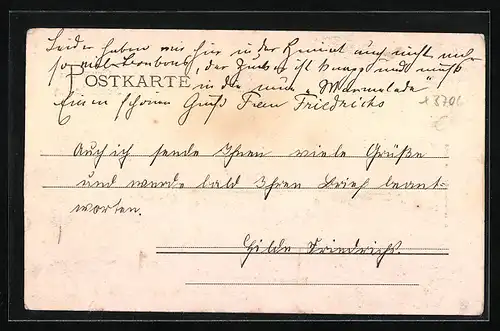 Leider haben wir hier in der Heimat auch nicht mehr
so viel Bonbons, der Zucker ist knapp und muß
POSTKARTE
in die Marmelade
Einen schönen Gruß Frau Friedrichs
18706
Auch ich sende Ihnen viele Grüße
und werde bald Ihren Brief beant-
worten.
Hilde Friedrichs.